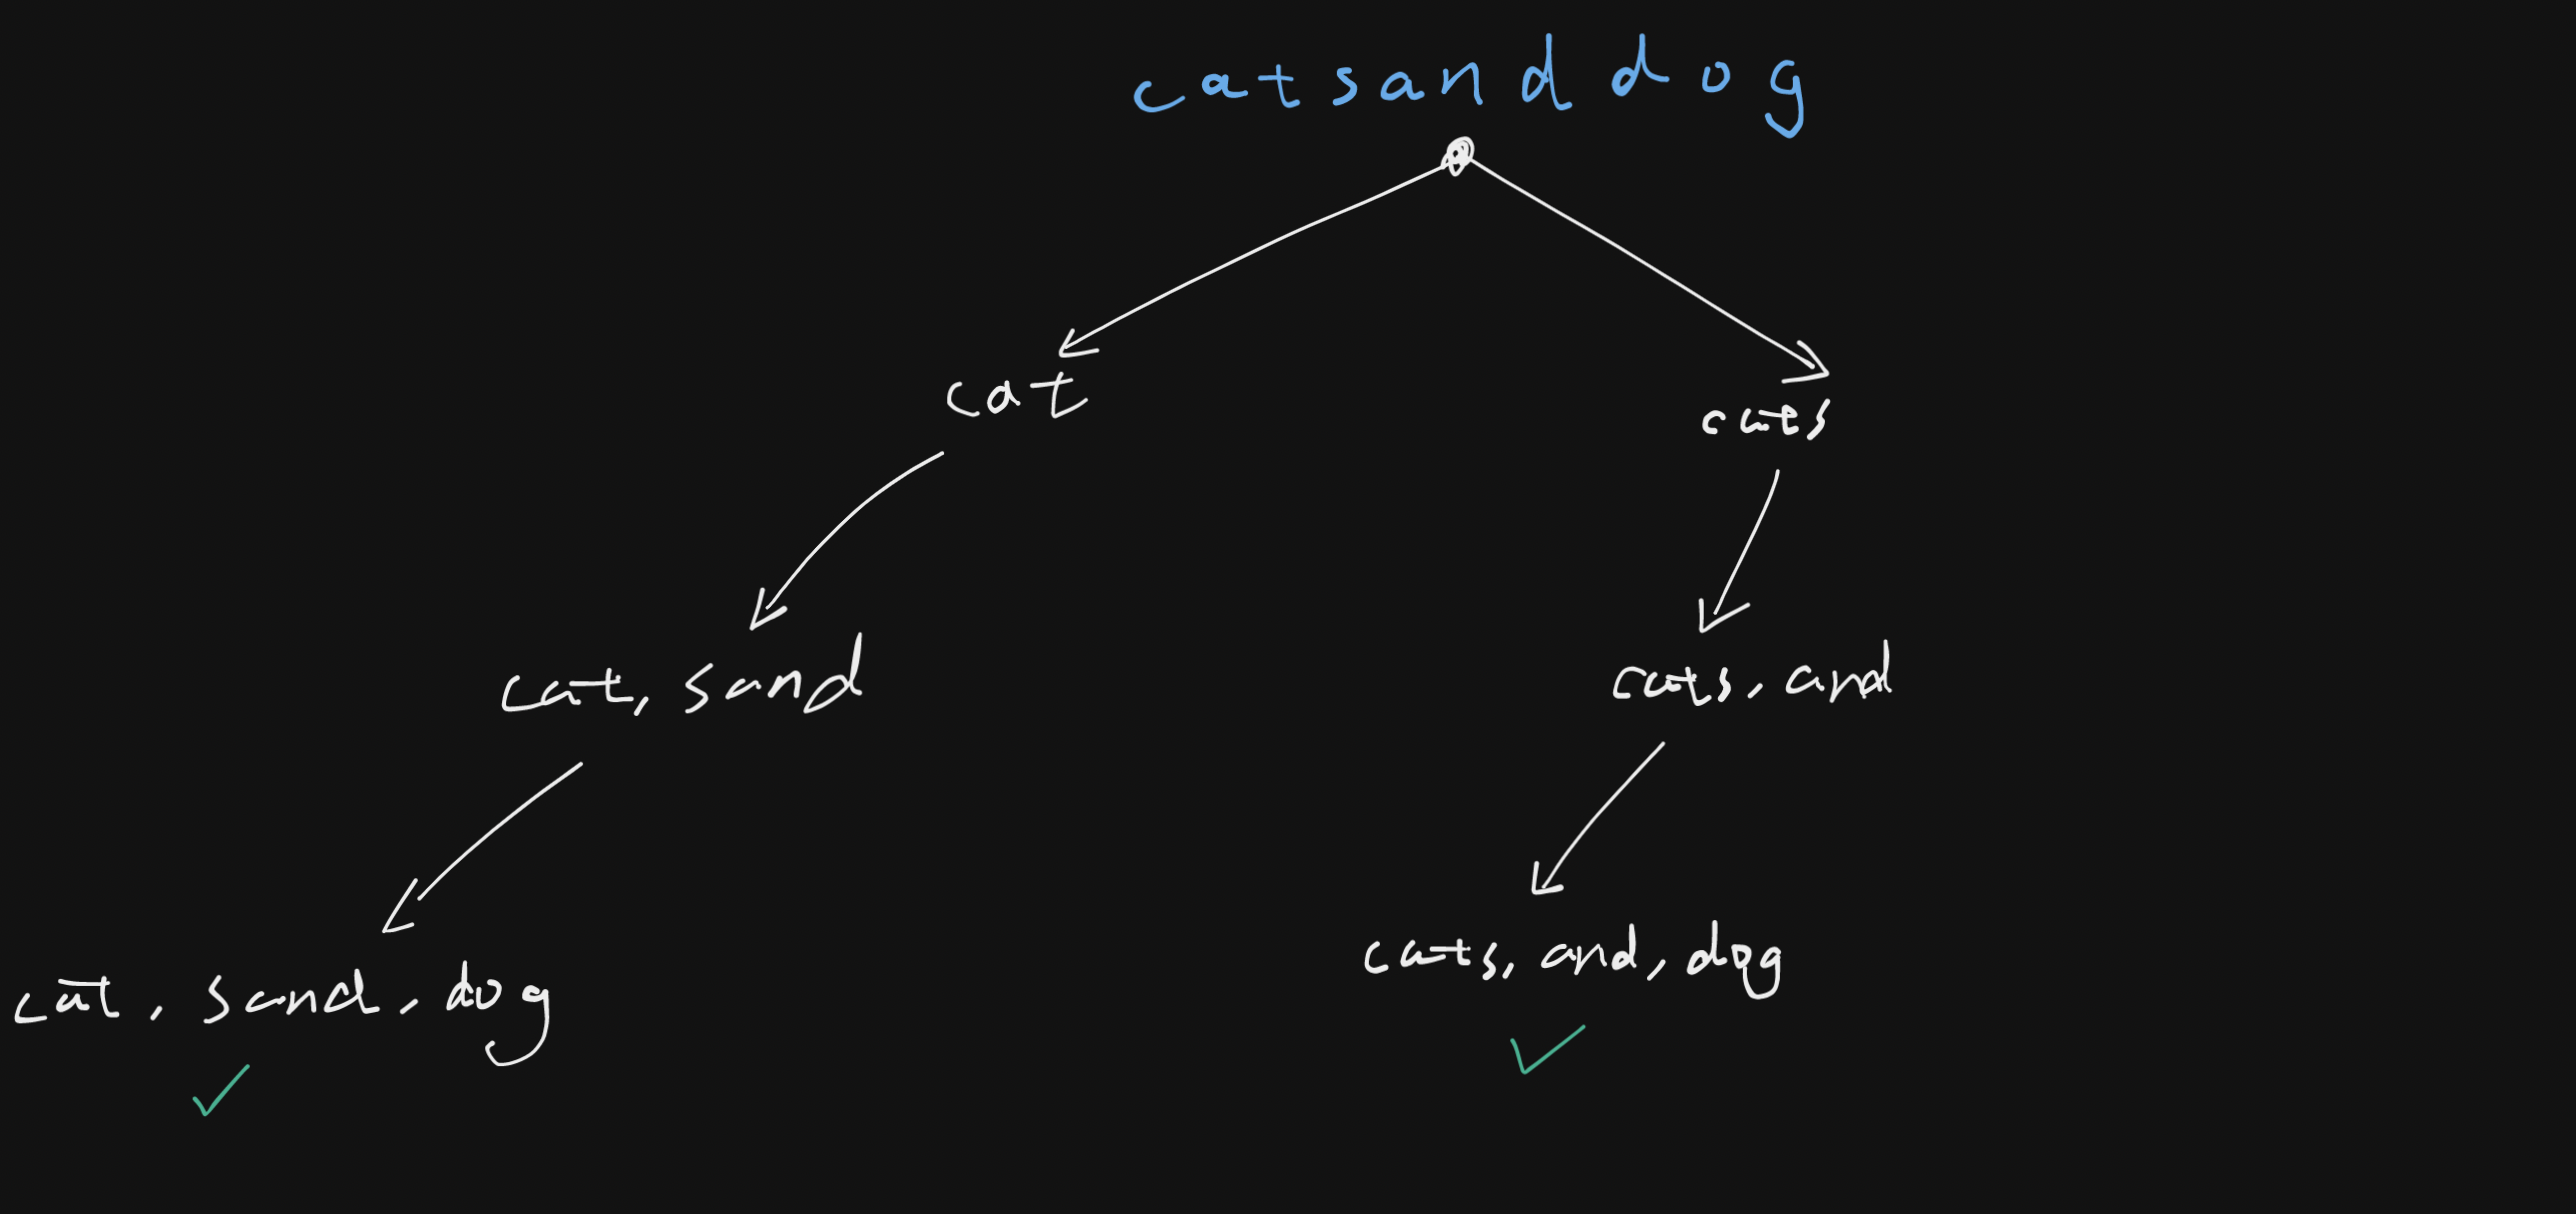 catsanddog
cat
cats
cat, sand
cats, and
cats, and, dog
cat, sand, dog